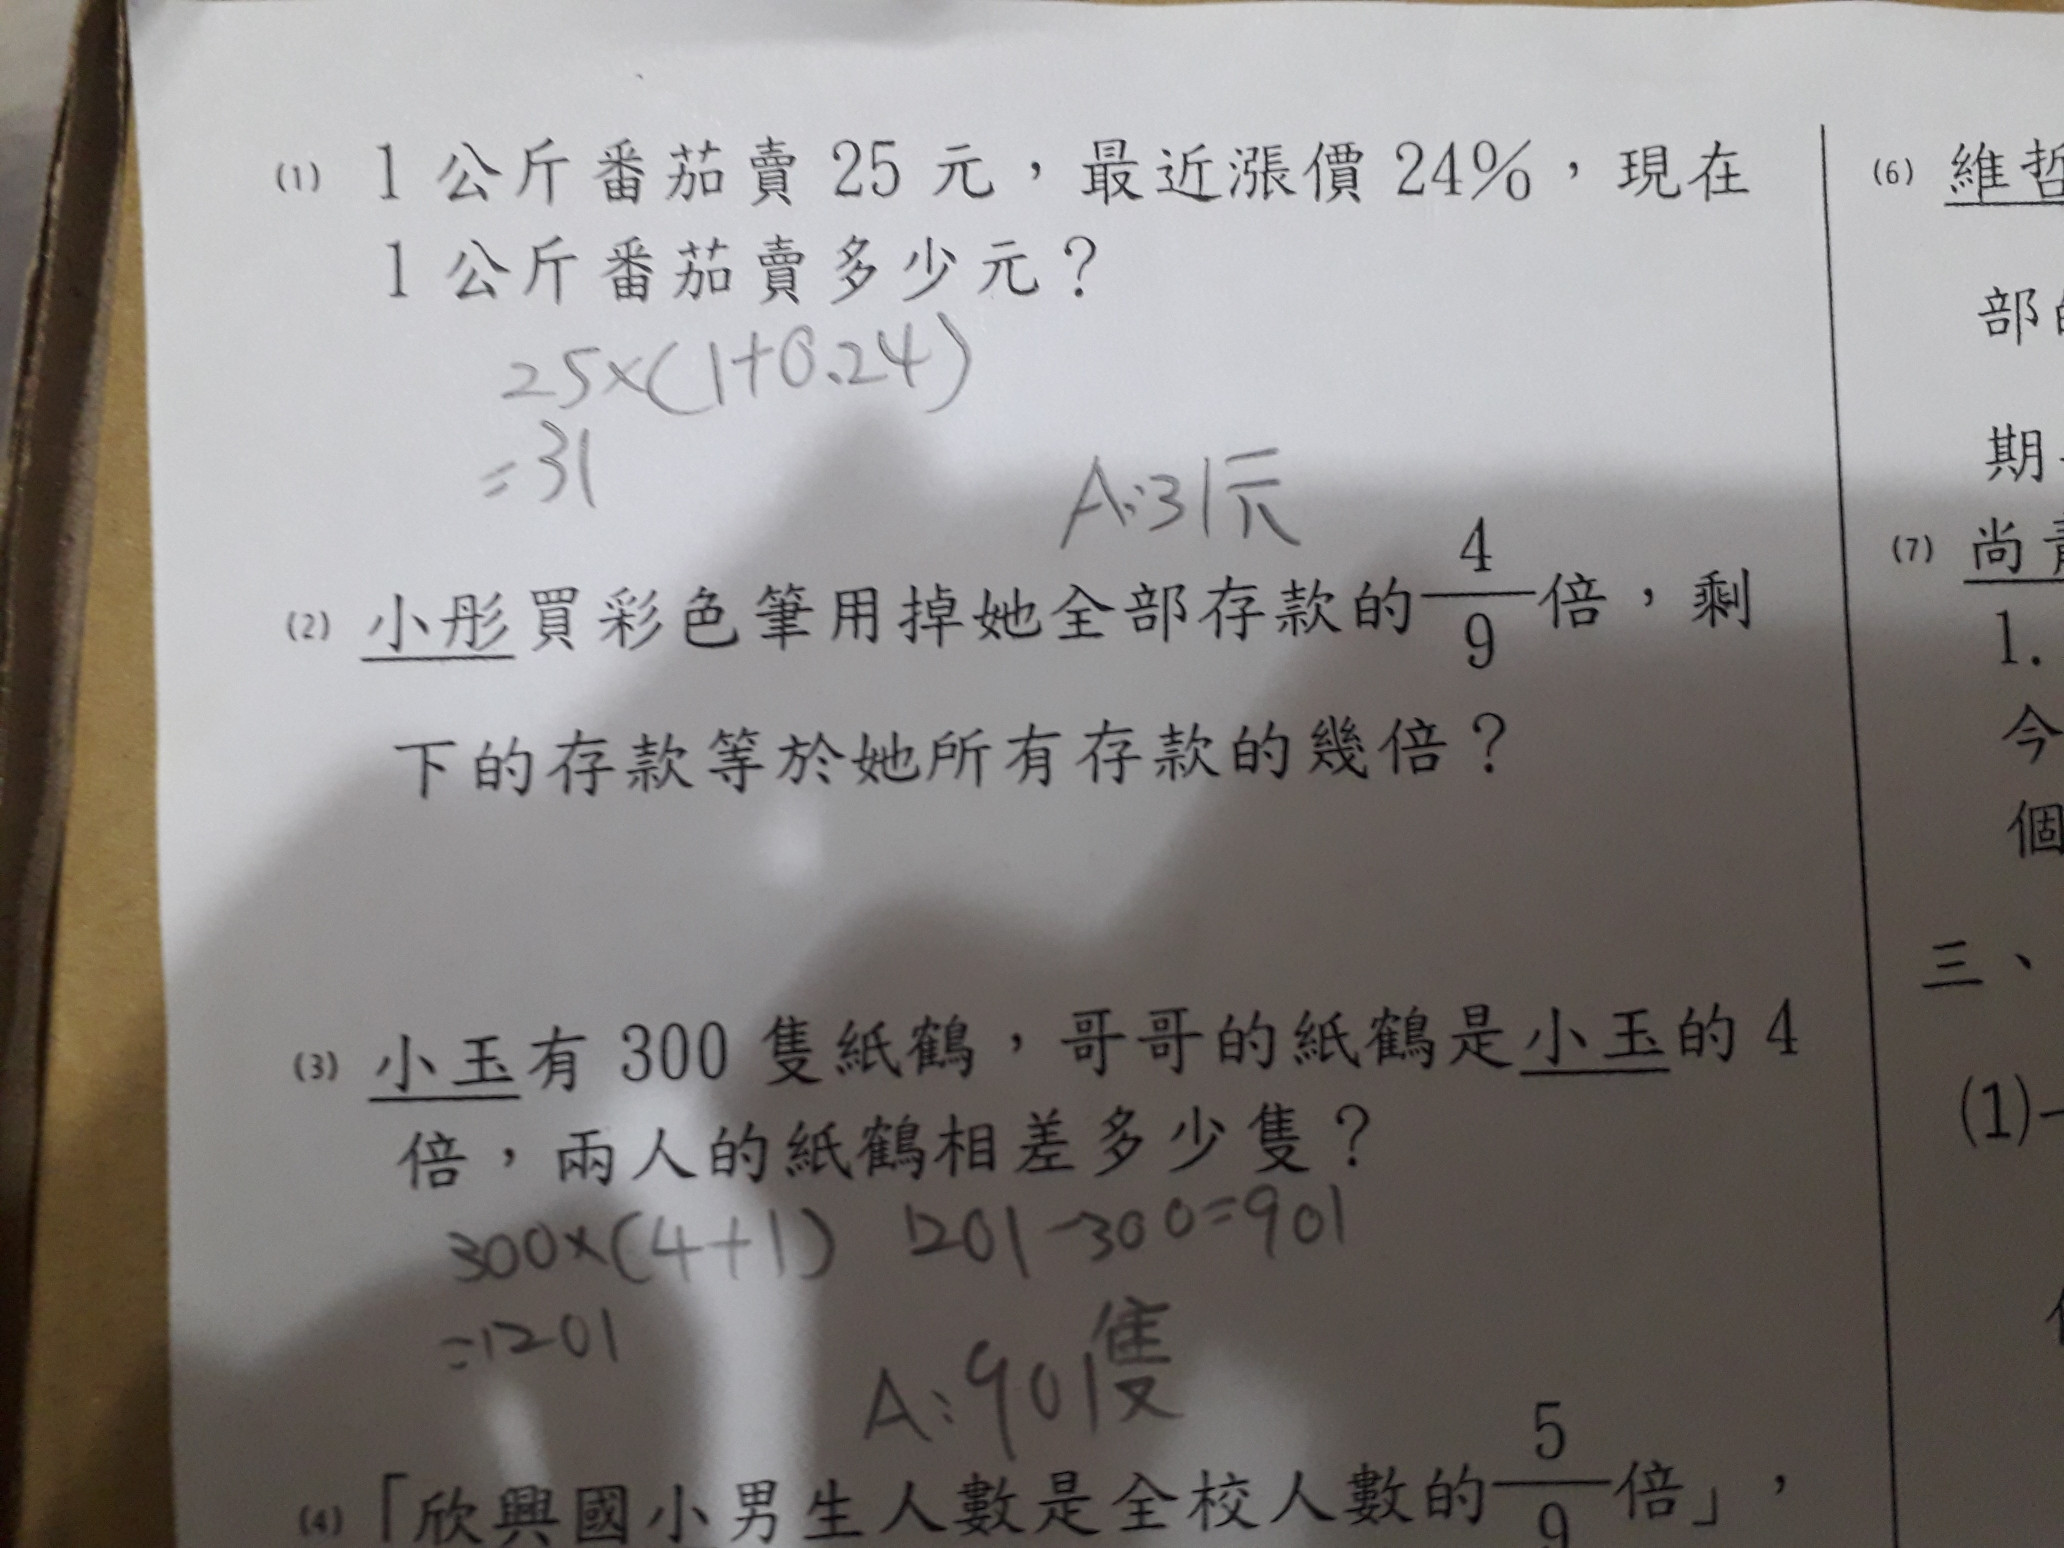 (1) 1公斤番茄賣25元，最近漲價24%，現在
1公斤番茄賣多少元？
25×(1+0.24)
=31
A:31元
(2) 小彤買彩色筆用掉她全部存款的4/9倍，剩
下的存款等於她所有存款的幾倍？
(3) 小玉有300隻紙鶴，哥哥的紙鶴是小玉的4
倍，兩人的紙鶴相差多少隻？
300×(4+1) 1201-300=901
=1201
A:901隻
(4)「欣興國小男生人數是全校人數的5/9倍」，
(6) 維哲
部
期
(7) 尚
1.
今
個
三、
(1)